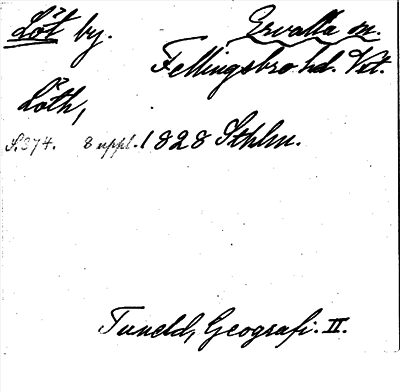 Löt by. Ervalla sn.
Fellingsbro hd. Vst.
Löth,
S. 374. 8 uppl. 1828 Sthlm.
Tuneld, Geografi. II.